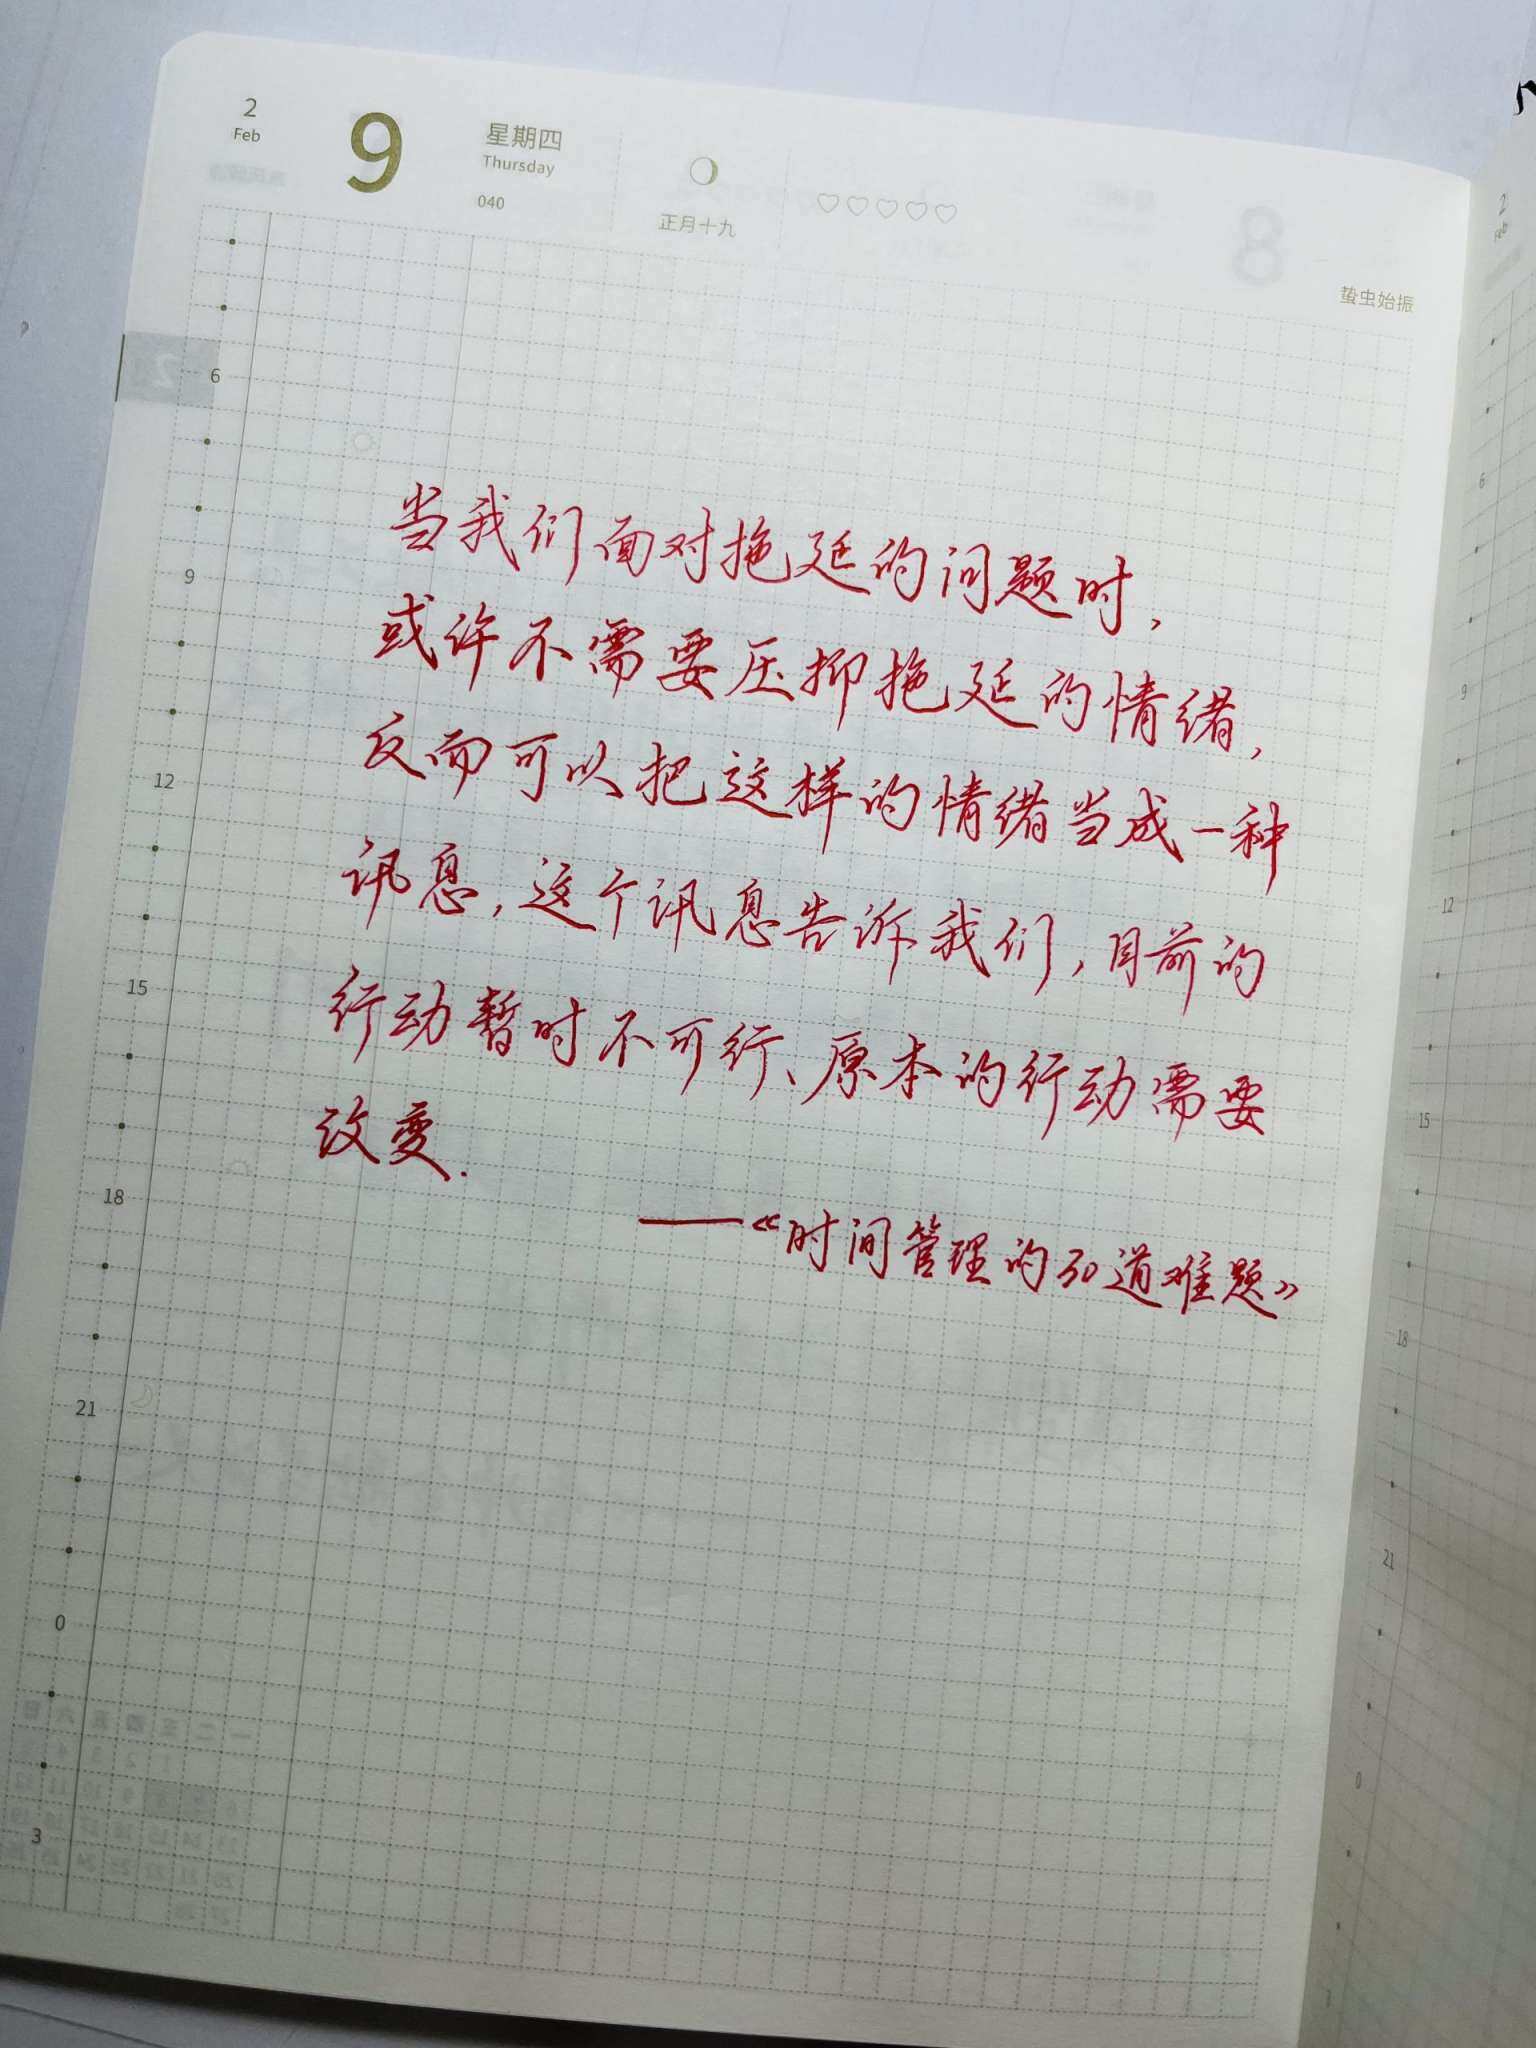 2
Feb
9
星期四
Thursday
040
正月十九
蛰虫始振
当我们面对拖延的问题时,
或许不需要压抑拖延的情绪,
反而可以把这样的情绪当成一种
讯息,这个讯息告诉我们,目前的
行动暂时不可行、原本的行动需要
改变.
——《时间管理的30道难题》
6
9
12
15
18
21
0
3
2
Feb
6
9
12
15
18
21
0